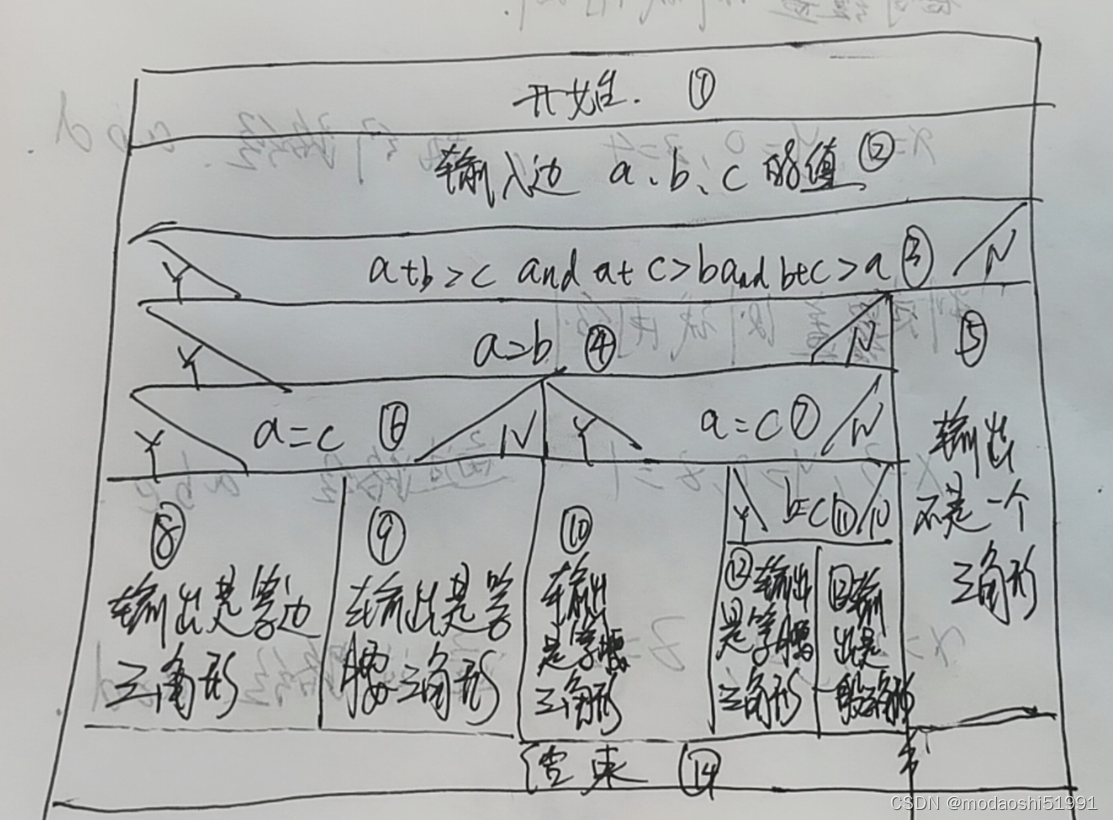 开始. ①
输入边 a、b、c 的值 ②
Y a+b>c and a+c>b and b+c>a ③ N
Y a=b ④ N
⑤
输出
不是一个
三角形
Y a=c ⑥ N
Y a=c ⑦ N
⑧
输出是等边
三角形
⑨
输出是等
腰三角形
⑩
输出
是等腰
三角形
Y b=c ⑪ N
⑫输出
是等腰
三角形
⑬输
出是
一般三角形
结束 ⑭
CSDN @modaoshi51991